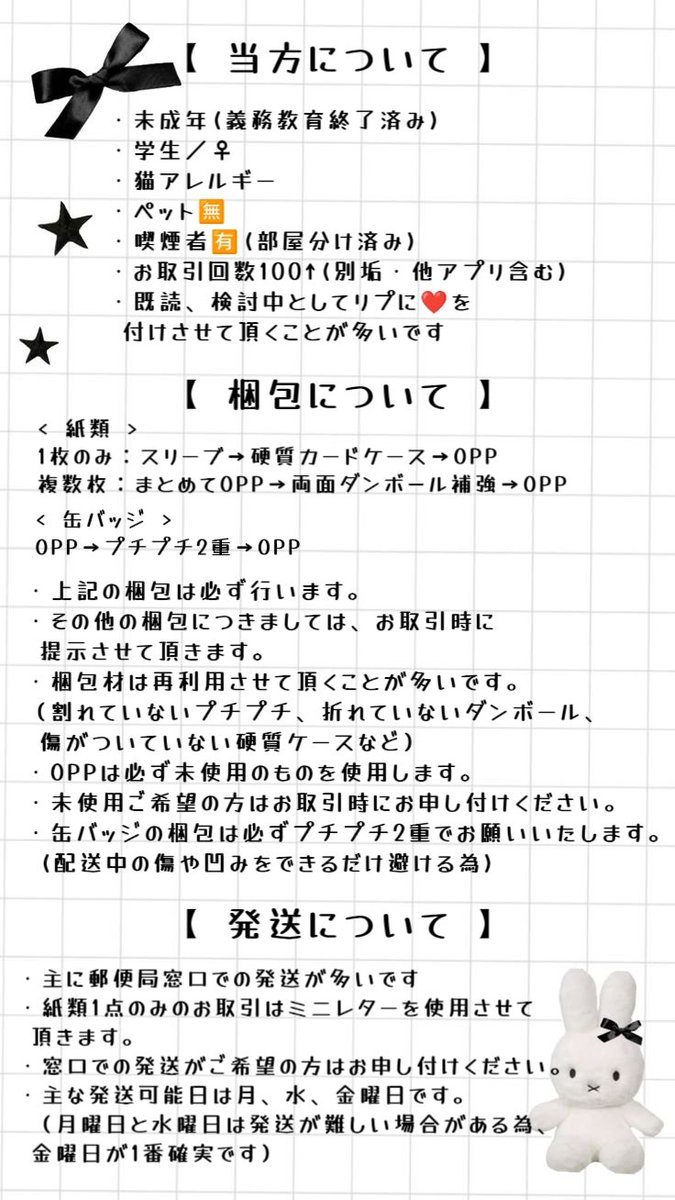 【 当方について 】
・未成年(義務教育終了済み)
・学生／♀
・猫アレルギー
・ペット🈚
・喫煙者🈶(部屋分け済み)
・お取引回数100↑(別垢・他アプリ含む)
・既読、検討中としてリプに❤️を
付けさせて頂くことが多いです
【 梱包について 】
< 紙類 >
1枚のみ：スリーブ→硬質カードケース→OPP
複数枚：まとめてOPP→両面ダンボール補強→OPP
< 缶バッジ >
OPP→プチプチ2重→OPP
・上記の梱包は必ず行います。
・その他の梱包につきましては、お取引時に
提示させて頂きます。
・梱包材は再利用させて頂くことが多いです。
(割れていないプチプチ、折れていないダンボール、
傷がついていない硬質ケースなど)
・OPPは必ず未使用のものを使用します。
・未使用ご希望の方はお取引時にお申し付けください。
・缶バッジの梱包は必ずプチプチ2重でお願いいたします。
(配送中の傷や凹みをできるだけ避ける為)
【 発送について 】
・主に郵便局窓口での発送が多いです
・紙類1点のみのお取引はミニレターを使用させて
頂きます。
・窓口での発送がご希望の方はお申し付けください。
・主な発送可能日は月、水、金曜日です。
(月曜日と水曜日は発送が難しい場合がある為、
金曜日が1番確実です)